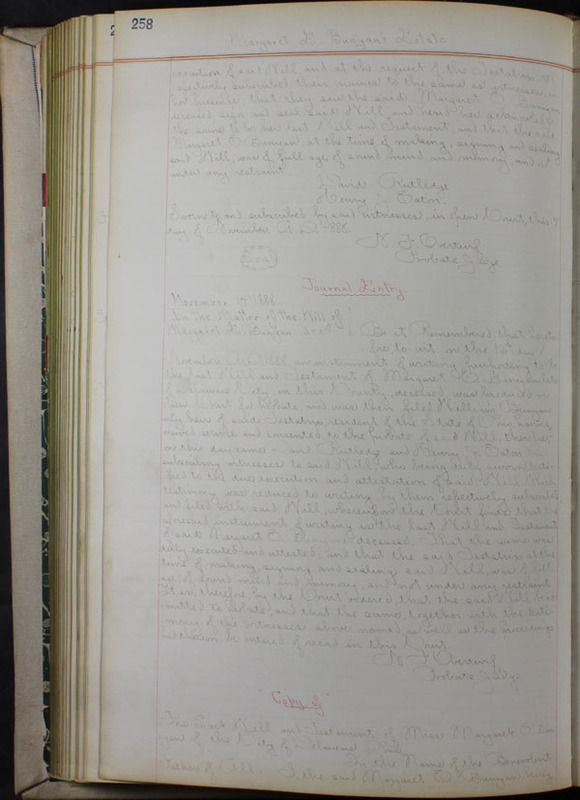 258
Margaret E. Bunyan's Estate
execution of said Will and at the request of the Testatrix, re-
spectively subscribed their names to the same as witnesses, in
her presence, that they saw the said Margaret E. Bunyan
sign and seal said Will, and heard her acknowledge
the same to be her last Will and Testament, and that the said
Margaret E. Bunyan at the time of making, signing and sealing
said Will, was of full age, of sound mind and memory, and not
under any restraint.
David Rutledge
Henry J. Eaton.
Sworn to and subscribed by said witnesses, in open Court, this
day of November A.D. 1888.
N. F. Overturf
Probate Judge
Seal
Journal Entry.
November 14" 1888.
In the Matter of the Will of
Margaret E. Bunyan, dec'd.
Be it Remembered that hereto-
fore to wit: on the day
November A.D. 1888, an instrument of writing purporting to be
the last Will and Testament of Margaret E. Bunyan late
of Delaware City, in this County, deceased, was produced in
open Court for Probate, and was then filed. William Bunyan
only heir of said Testatrix, resident of the State of Ohio, having
waived service and consented to the probate of said Will, therefor,
on this day came Rutledge and Henry J. Eaton
subscribing witnesses to said Will, who being duly sworn, testi-
fied to the due execution and attestation of said Will. Which
testimony was reduced to writing, by them respectively subscribed
and filed with said Will, whereupon the Court finds that the
aforesaid instrument of writing is the last Will and Testament
of said Margaret E. Bunyan deceased. That the same was
duly executed and attested, and that the said Testatrix at the
time of making, signing and sealing, said Will, was of full
age, of sound mind and memory, and not under any restraint.
It is, therefore, by the Court ordered, that the said Will be ad-
mitted to Probate, and that the same, together with the testi-
mony of the witnesses above named, as well as the proceedings
be entered of record in this Court.
N. F. Overturf
Probate Judge.
"Copy of"
The Last Will and Testament of Miss Margaret E. Bun-
yan of the City of Delaware Ohio.
In the Name of the Benevolent
Father of All. I, the said Margaret E. Bunyan being